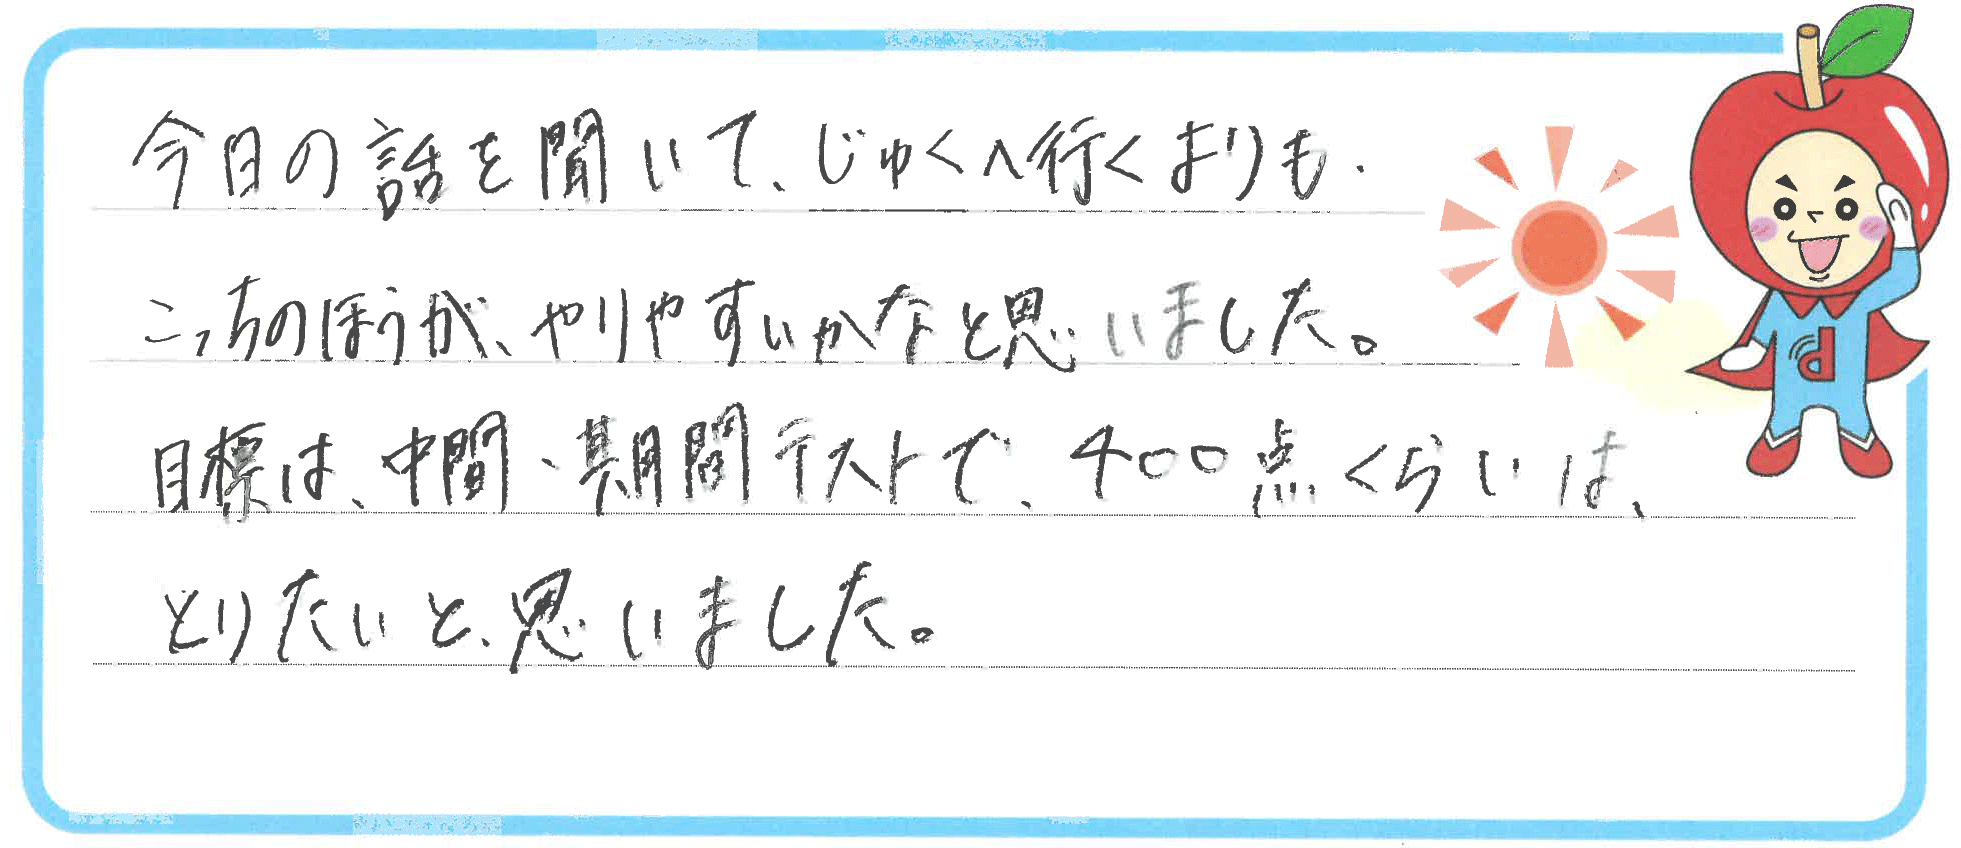 今日の話を聞いて、じゅくへ行くよりも、
こっちのほうが、やりやすいかなと思いました。
目標は、中間・期間テストで、400点くらいは、
とりたいと、思いました。